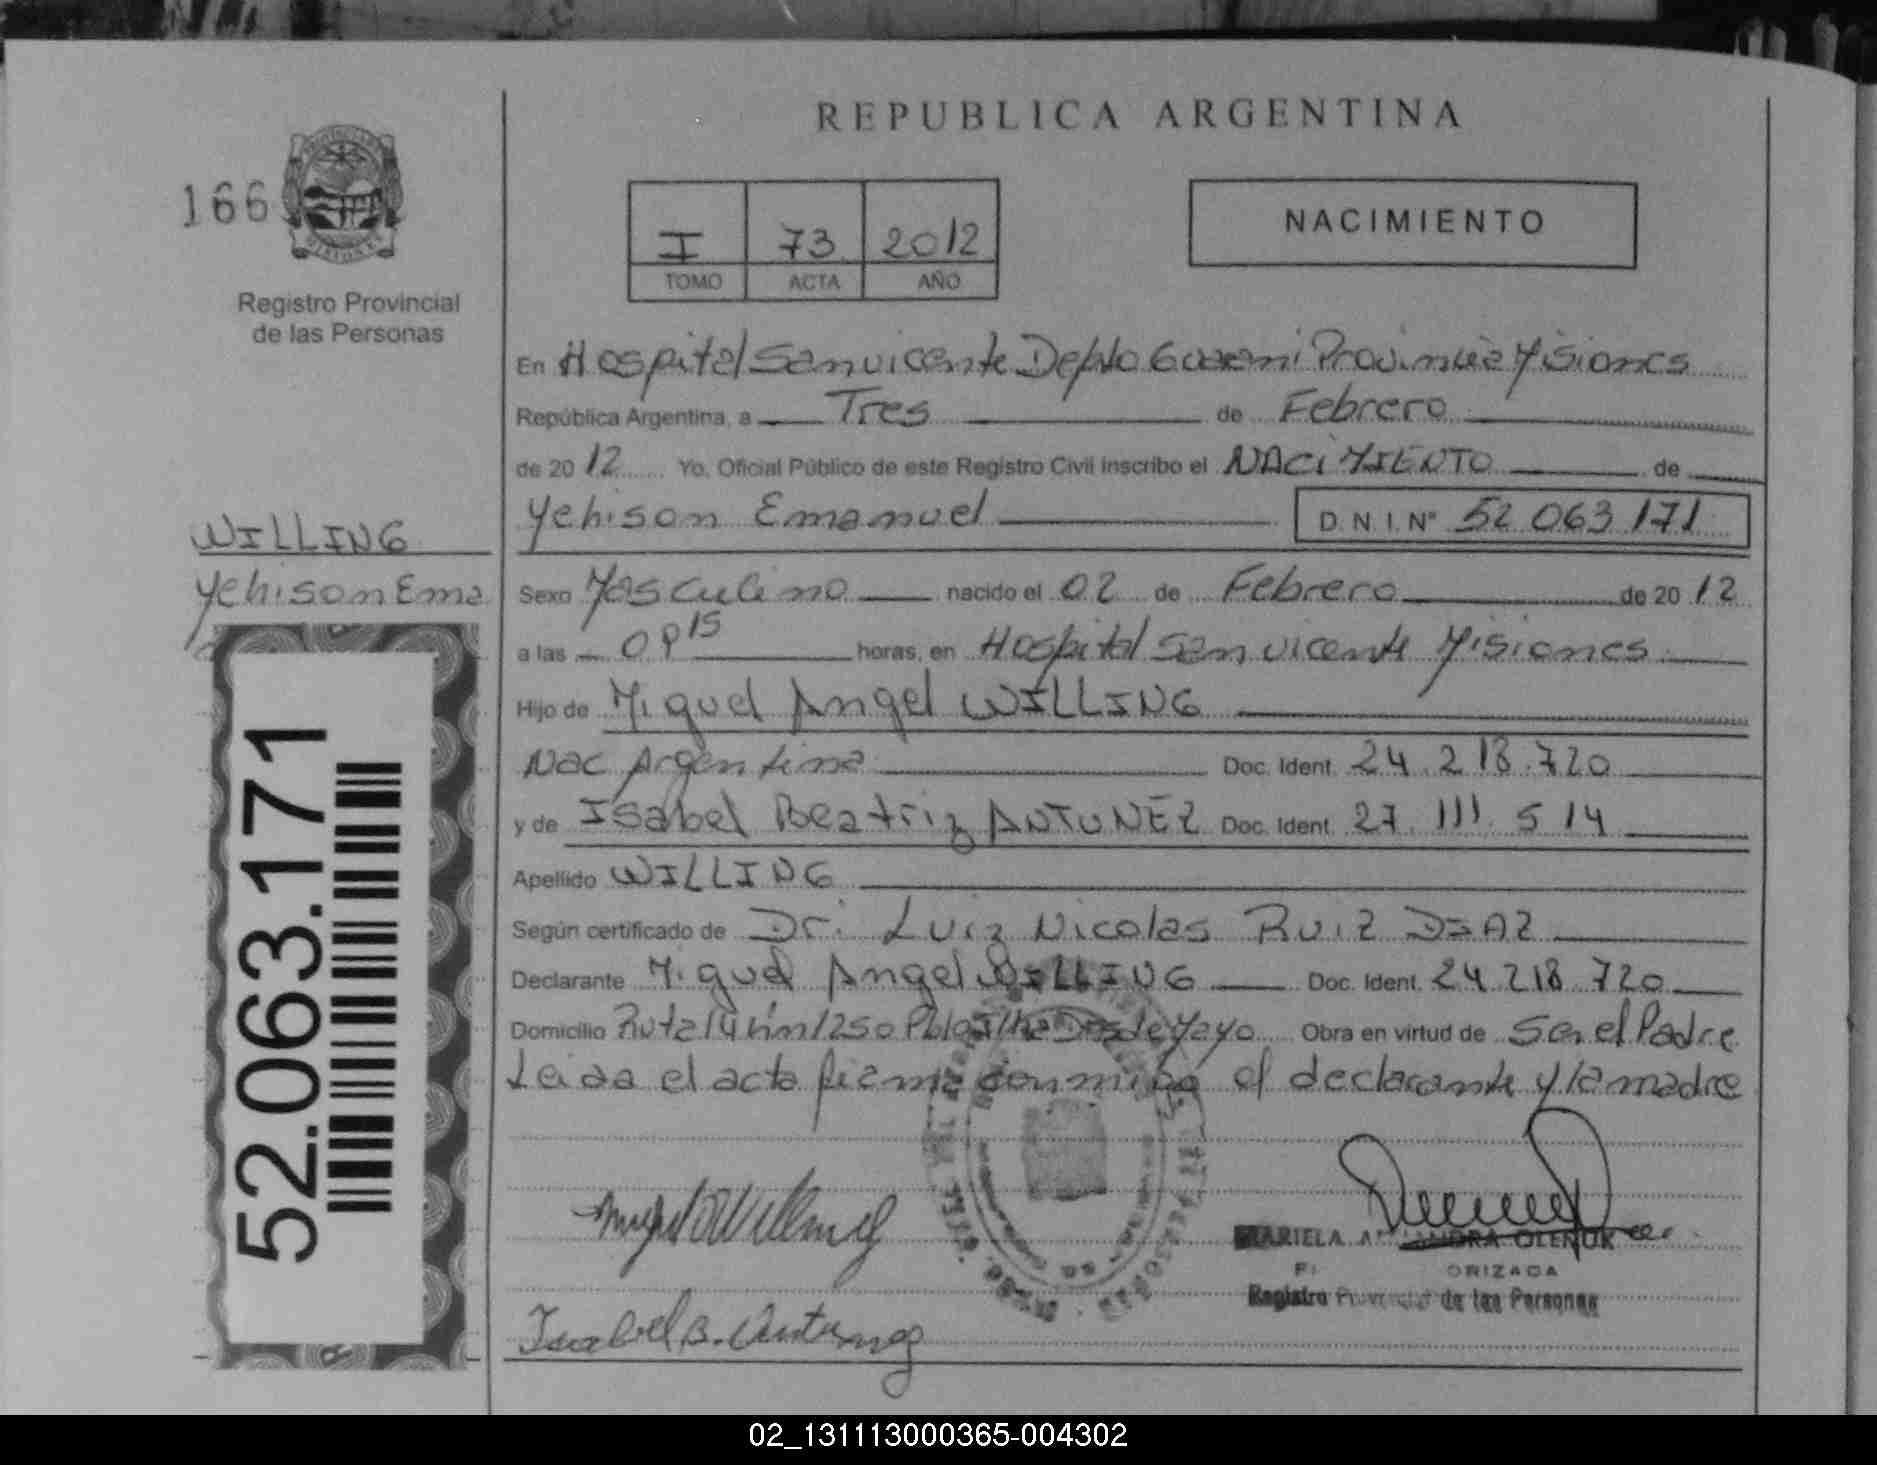 REPUBLICA ARGENTINA
166
Registro Provincial
de las Personas
I 73 2012
TOMO ACTA AÑO
NACIMIENTO
En Hospital San vicente Depto Guarani Provincia Misiones
República Argentina, a Tres de Febrero
de 2012 Yo, Oficial Público de este Registro Civil inscribo el NACiMIENTO de
Yehison Emanuel D.N.I.Nº 52 063 171
WILLING
Yehison Ema
Sexo Masculino nacido el 02 de Febrero de 2012
a las 15 horas, en Hospital San vicente Misiones
Hijo de Miguel Angel WILLING
Nac Argentina Doc. Ident. 24.218.720
y de Isabel Beatriz ANTUNEZ Doc. Ident. 27.111.514
Apellido WILLING
Según certificado de Dr. Luiz Nicolas Ruiz DIAZ
Declarante Miguel Angel WILLING Doc. Ident. 24 218 720
Domicilio Ruta 14 km 1250 de Mayo Obra en virtud de Ser el Padre
Leida el acta firma conmigo el declarante y la madre
52.063.171
MARIELA OLENUK
ORIZADA
Registro Provincial de las Personas
Isabel B. Antunez
02_131113000365-004302